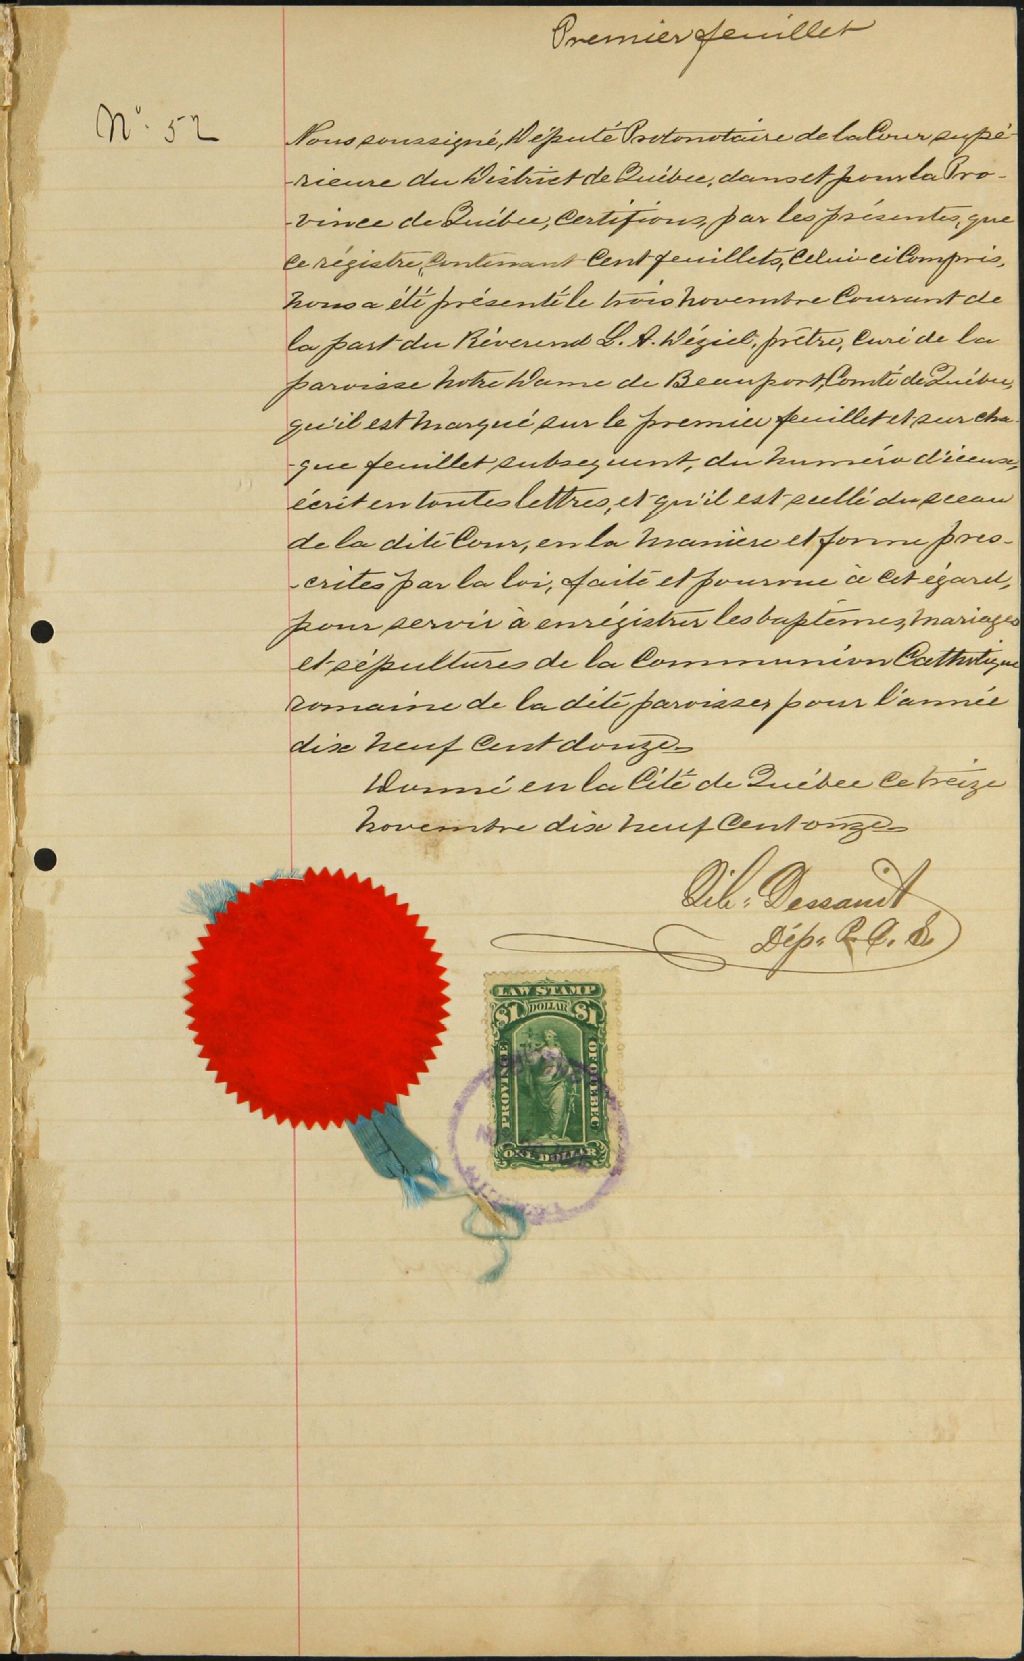 Premier feuillet
No. 52
Nous soussigné, Député Protonotaire de la Cour supé-
-rieure du District de Québec, dans et pour la Pro-
-vince de Québec, Certifions, par les présentes, que
ce régistre, Contenant Cent feuillets, Celui-ci Compris,
nous a été présenté le trois novembre Courant de
la part du Révérend L. A. Déziel, prêtre, Curé de la
paroisse Notre Dame de Beauport, Comté de Québec,
qu'il est marqué sur le premier feuillet et sur cha-
-que feuillet subsequent, du numéro d'iceux,
écrit en toutes lettres, et qu'il est scellé du sceau
de la dite Cour, en la manière et forme pres-
-crites par la loi, faite et pourvue à cet égard,
pour servir à enrégistrer les baptêmes, mariages
et sépultures de la Communion Catholique
romaine de la dite paroisse, pour l'année
dix neuf Cent douze
Donné en la Cité de Québec Ce treize
novembre dix neuf Cent onze
Dessault
Dép. P. C. S.
LAW STAMP
$1 DOLLAR $1
PROVINCE OF QUEBEC
ONE DOLLAR